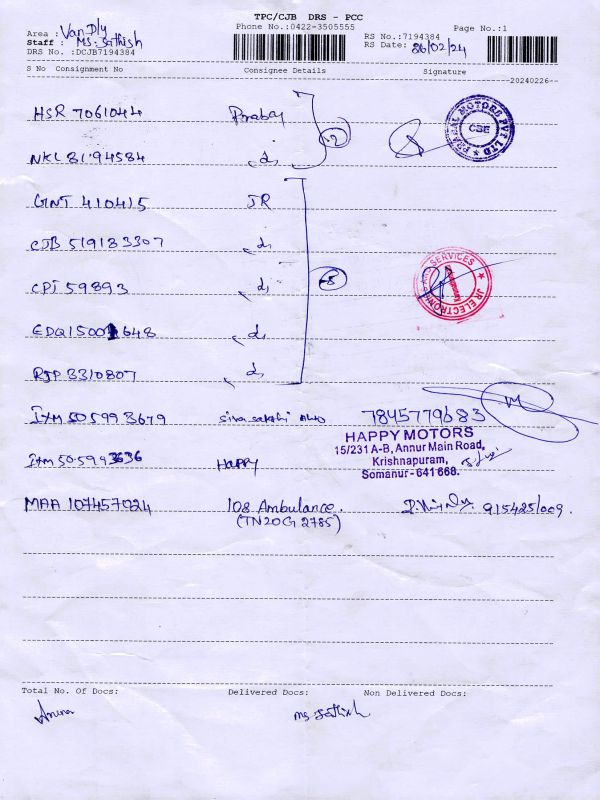 TPC/CJB DRS - PCC
Phone No.:0422-3505555
Page No.:1
Area : Van Dly
RS No.:7194384
Staff : MS. Sathish
RS Date: 26/02/24
DRS No. :DCJB7194384
S No Consignment No Consignee Details Signature
20240226
HSR 7061044
PRABAL MOTORS PVT LTD
CBE
NKL 81.94584 do
GNT 410415 JR
CJB 519183307 do
JR ELECTRONIC SERVICES
CPJ 59893 do
EDQ15001648 do
RJP 3310807 do
Ixm 50 599 3679 siva sakthi Auto 7845779683
HAPPY MOTORS
15/231 A-B, Annur Main Road,
Krishnapuram,
Somanur - 641 668.
Ixm 50.5993636 HAPPY
MAA 107457024 108 Ambulance.
(TN20G 2785)
Total No. Of Docs: Delivered Docs: Non Delivered Docs:
ms sathish